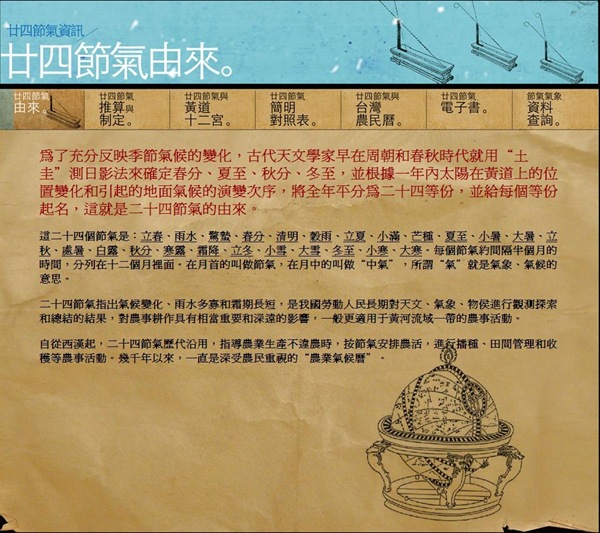 廿四節氣資訊
廿四節氣由來。
廿四節氣
由來。
廿四節氣
推算與
制定。
廿四節氣與
黃道
十二宮。
廿四節氣
簡明
對照表。
廿四節氣與
台灣
農民曆。
廿四節氣
電子書。
節氣氣象
資料
查詢。
為了充分反映季節氣候的變化，古代天文學家早在周朝和春秋時代就用“土
圭”測日影法來確定春分、夏至、秋分、冬至，並根據一年內太陽在黃道上的位
置變化和引起的地面氣候的演變次序，將全年平分為二十四等份，並給每個等份
起名，這就是二十四節氣的由來。
這二十四個節氣是：立春、雨水、驚蟄、春分、清明、穀雨、立夏、小滿、芒種、夏至、小暑、大暑、立
秋、處暑、白露、秋分、寒露、霜降、立冬、小雪、大雪、冬至、小寒、大寒。每個節氣約間隔半個月的
時間，分列在十二個月裡面。在月首的叫做節氣，在月中的叫做“中氣”，所謂“氣”就是氣象、氣候的
意思。
二十四節氣指出氣候變化、雨水多寡和霜期長短，是我國勞動人民長期對天文、氣象、物侯進行觀測探索
和總結的結果，對農事耕作具有相當重要和深遠的影響，一般更適用于黃河流域一帶的農事活動。
自從西漢起，二十四節氣歷代沿用，指導農業生產不違農時，按節氣安排農活，進行播種、田間管理和收
穫等農事活動。幾千年以來，一直是深受農民重視的“農業氣候曆”。